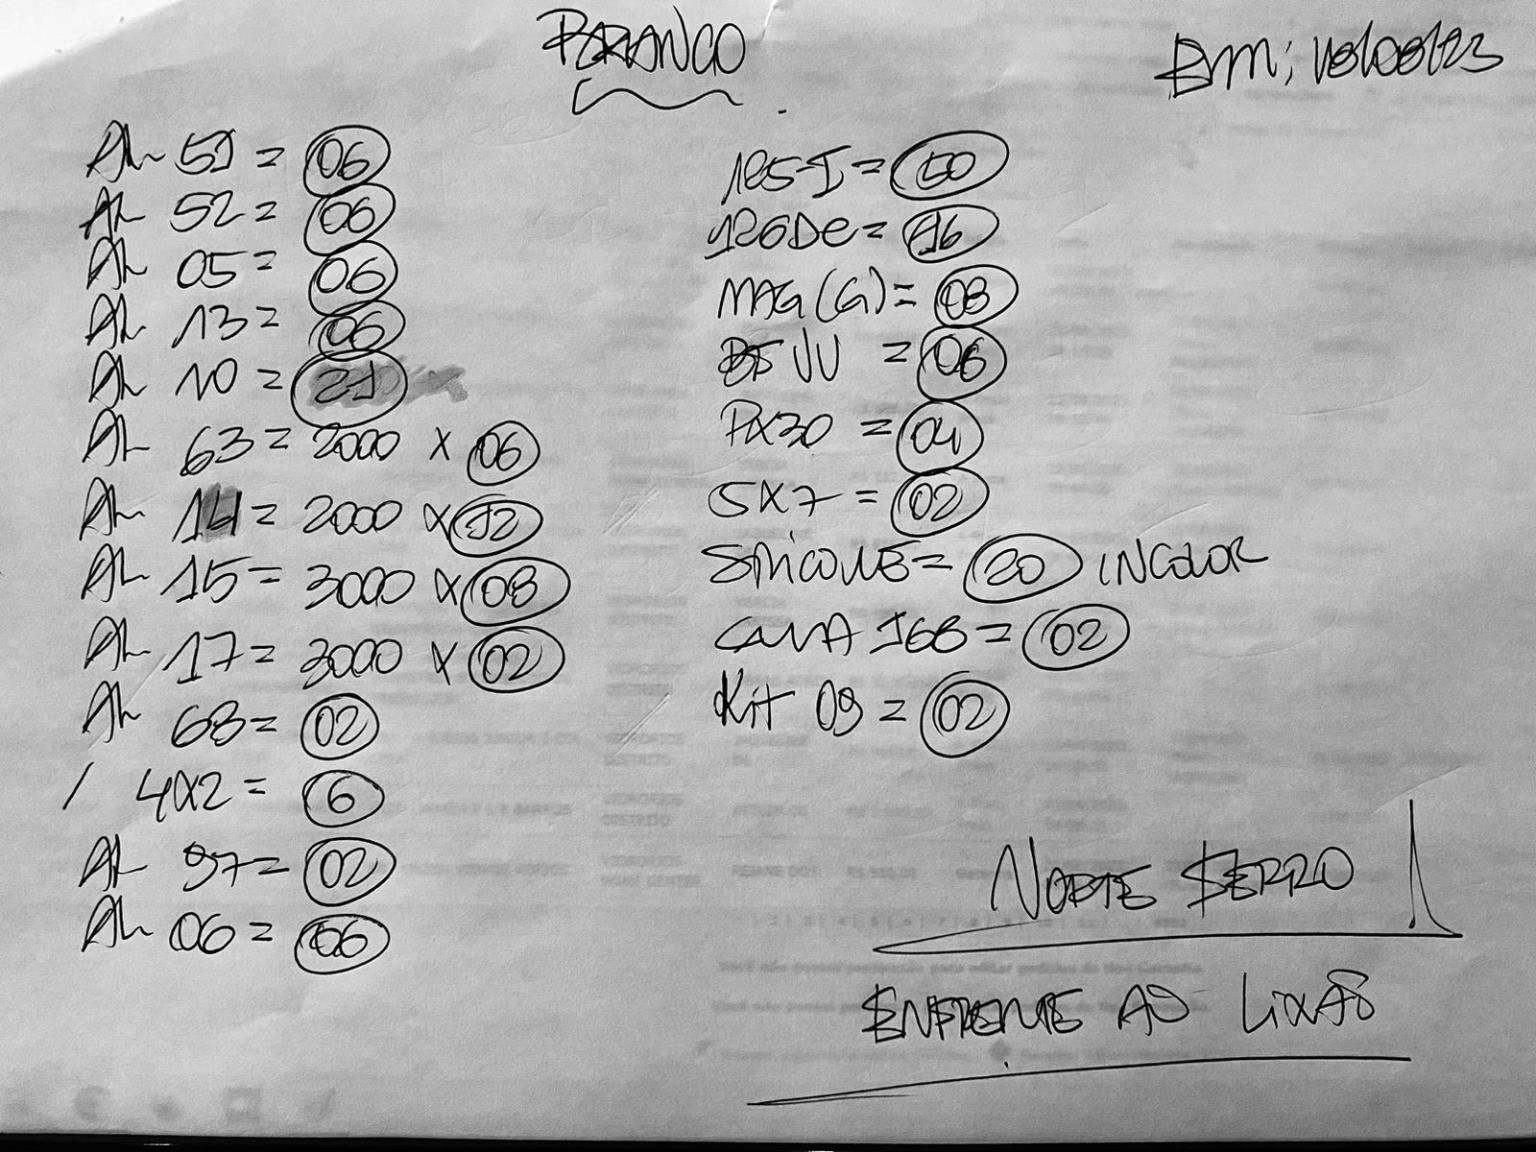 BARANCO
Em; 18/08/23
AL 51 = 06
AL 52 = 06
AL 05 = 06
AL 13 = 06
AL 10 = 21
AL 63 = 2000 x 06
AL 14 = 2000 x 12
AL 15 = 3000 x 08
AL 17 = 3000 x 02
AL 68 = 02
/ 4x2 = 6
AL 97 = 02
AL 06 = 06
185-I = 50
126DC = 16
MAG (G) = 08
BF VU = 06
PX30 = 04
5X7 = 02
SILICONE = 20 INCOLOR
CANA 168 = 02
Kit 09 = 02
NORTE SERRO
ENFRENTE AO LIXÃO